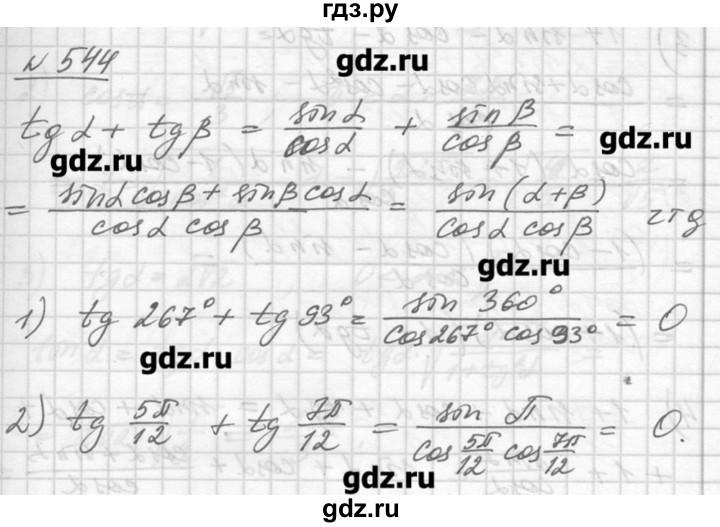 гдз.ру
N 544
gdz.ru
tg α + tg β = sin α / cos α + sin β / cos β =
gdz.ru
gdz.ru
= (sin α cos β + sin β cos α) / (cos α cos β) = sin (α + β) / (cos α cos β) чтд
gdz.ru
1) tg 267° + tg 93° = sin 360° / (cos 267° cos 93°) = 0
gdz.ru
2) tg 5π/12 + tg 7π/12 = sin π / (cos 5π/12 cos 7π/12) = 0.
gdz.ru
гдз.ру